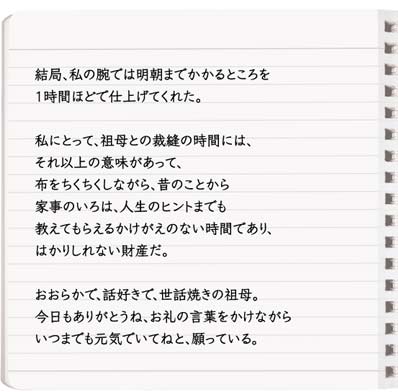 結局、私の腕では明朝までかかるところを
1時間ほどで仕上げてくれた。
私にとって、祖母との裁縫の時間には、
それ以上の意味があって、
布をちくちくしながら、昔のことから
家事のいろは、人生のヒントまでも
教えてもらえるかけがえのない時間であり、
はかりしれない財産だ。
おおらかで、話好きで、世話焼きの祖母。
今日もありがとうね、お礼の言葉をかけながら
いつまでも元気でいてねと、願っている。